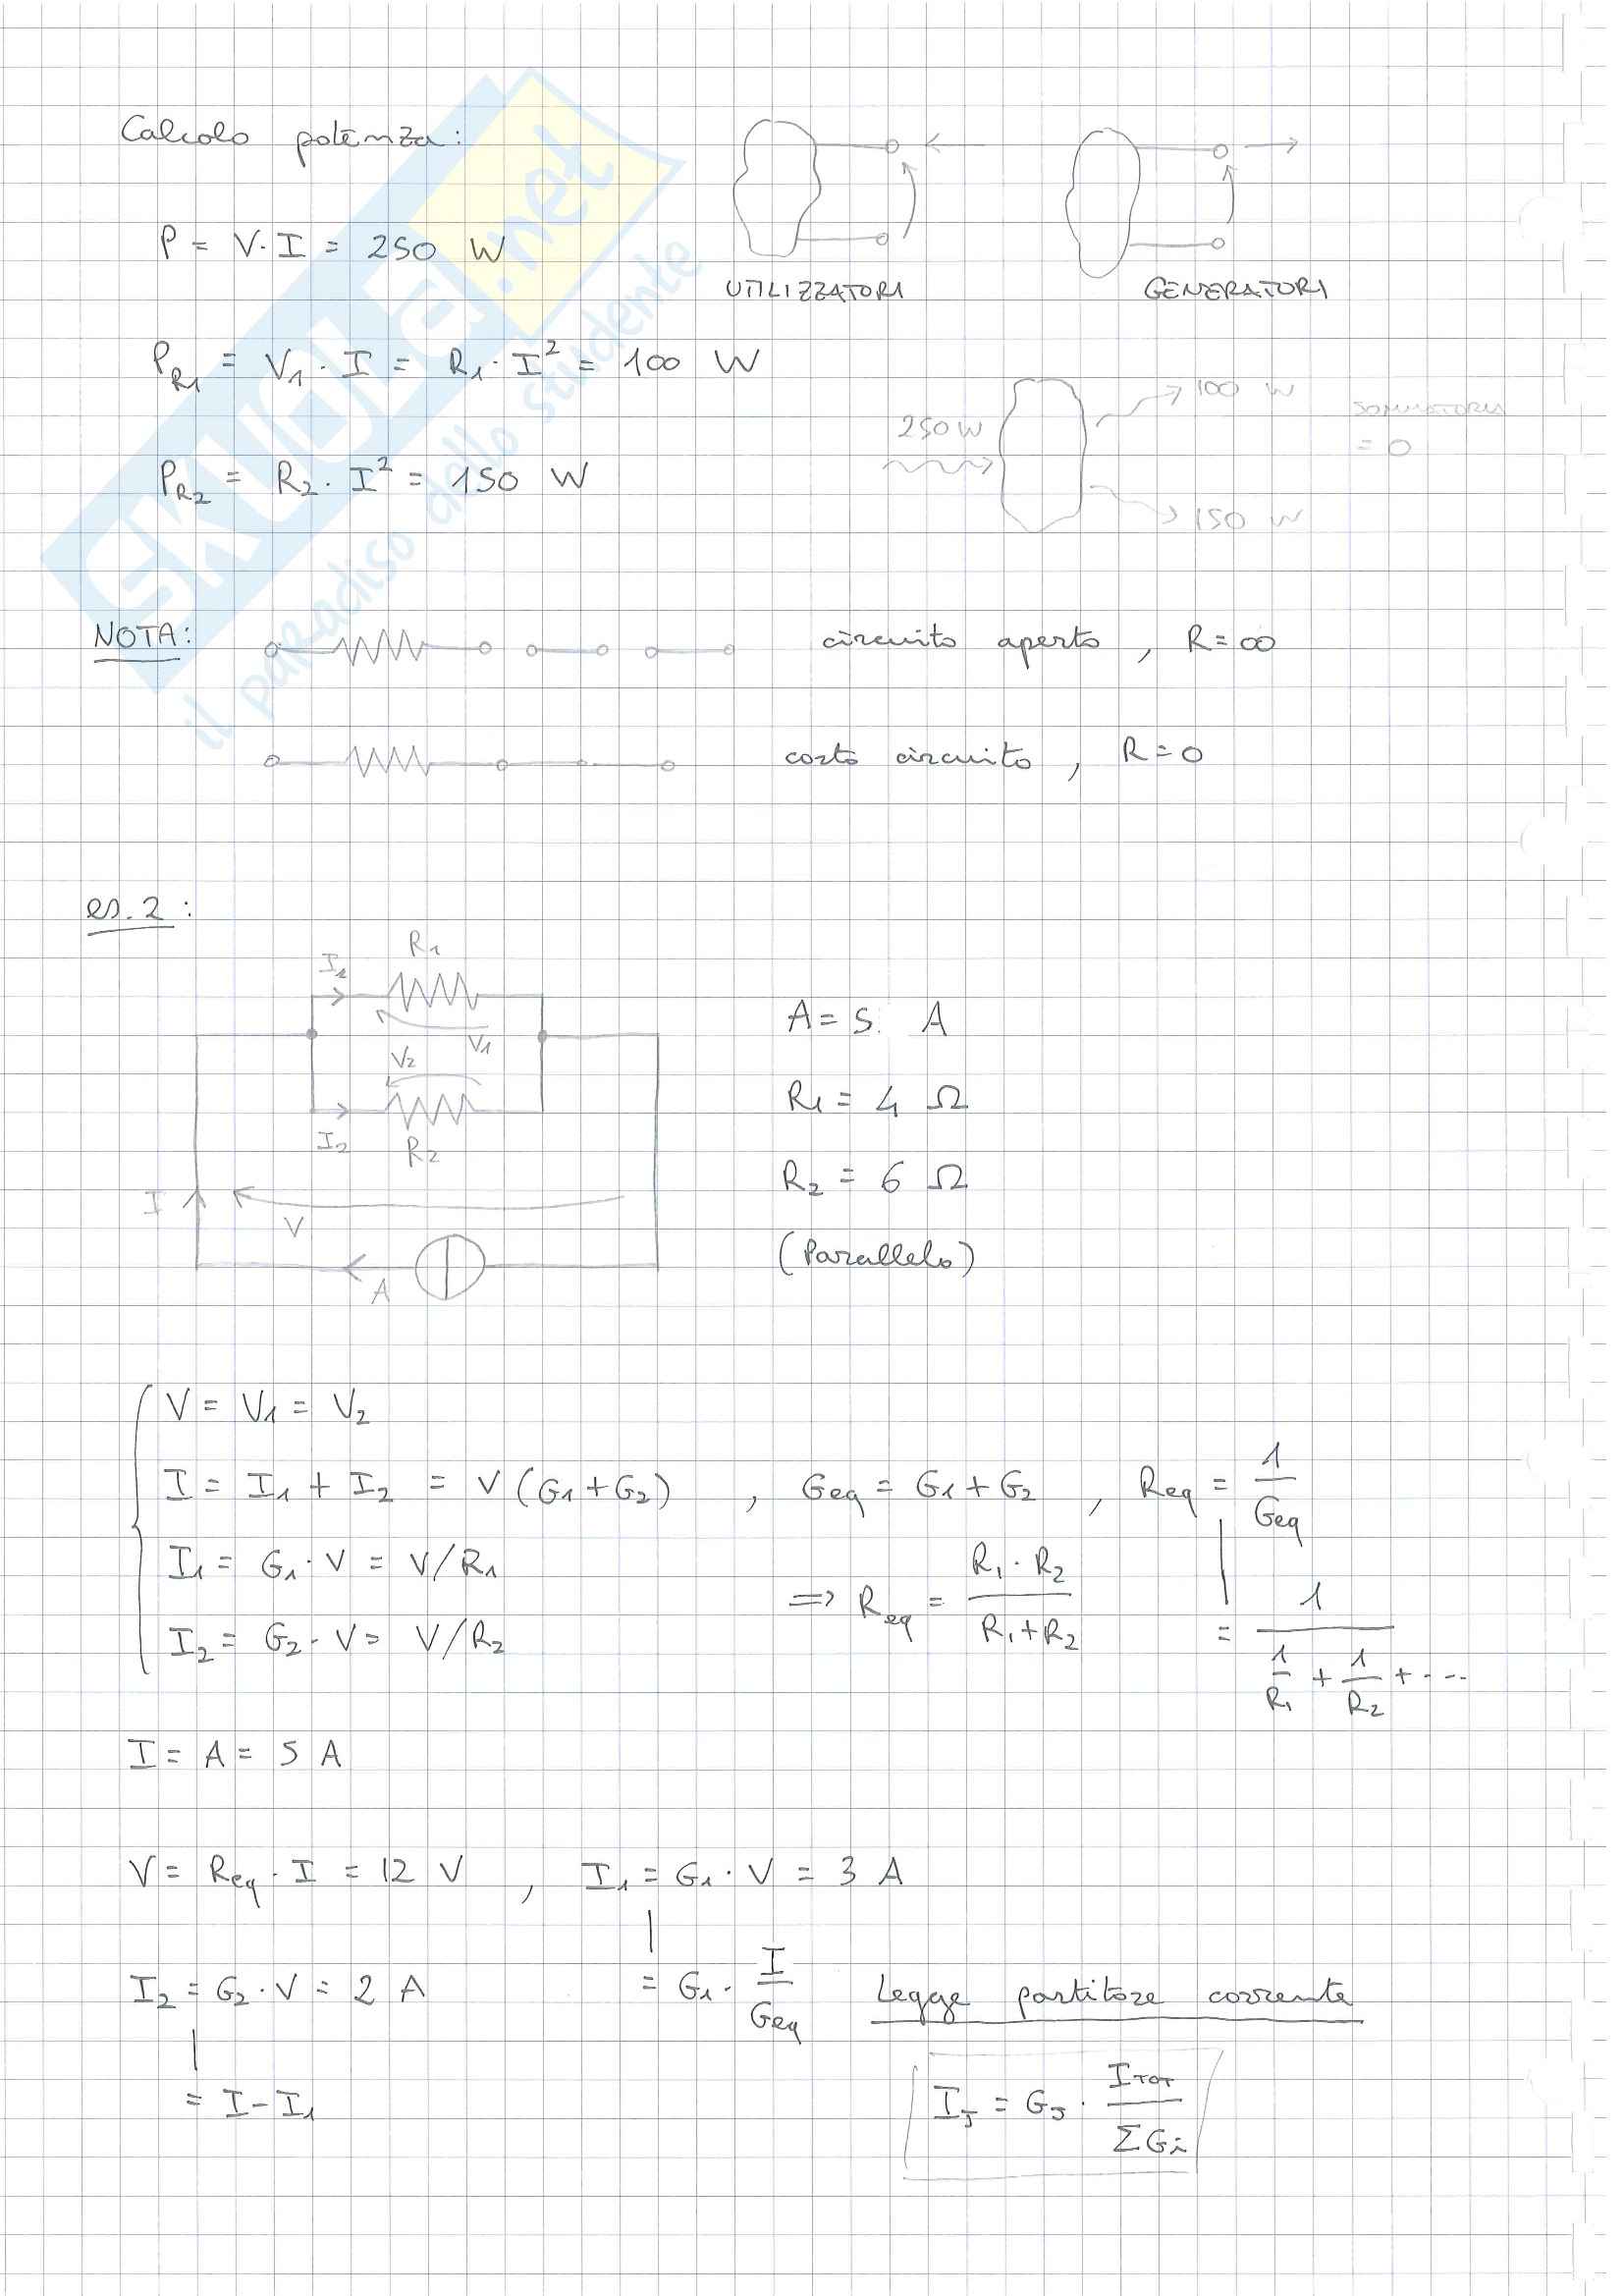 Calcolo potenza:
P = V·I = 250 W
UTILIZZATORI
GENERATORI
P_R1 = V1 · I = R1 · I² = 100 W
250 W
100 W
150 W
SOMMATORIA
= 0
P_R2 = R2 · I² = 150 W
NOTA:
circuito aperto , R = ∞
corto circuito , R = 0
es. 2 :
R1
I1
V1
V2
I2
R2
I
V
A
A = 5 A
R1 = 4 Ω
R2 = 6 Ω
(Parallelo)
V = V1 = V2
I = I1 + I2 = V (G1 + G2) , Geq = G1 + G2 , Req = 1/Geq
I1 = G1 · V = V/R1
=> Req = R1 · R2 / R1 + R2
= 1 / 1/R1 + 1/R2 + ...
I2 = G2 · V = V/R2
I = A = 5 A
V = Req · I = 12 V , I1 = G1 · V = 3 A
I2 = G2 · V = 2 A
= G1 · I/Geq
Legge partitore corrente
= I - I1
IJ = GJ · ITOT / ΣGi
SKUOLA.net
il paradiso dello studente